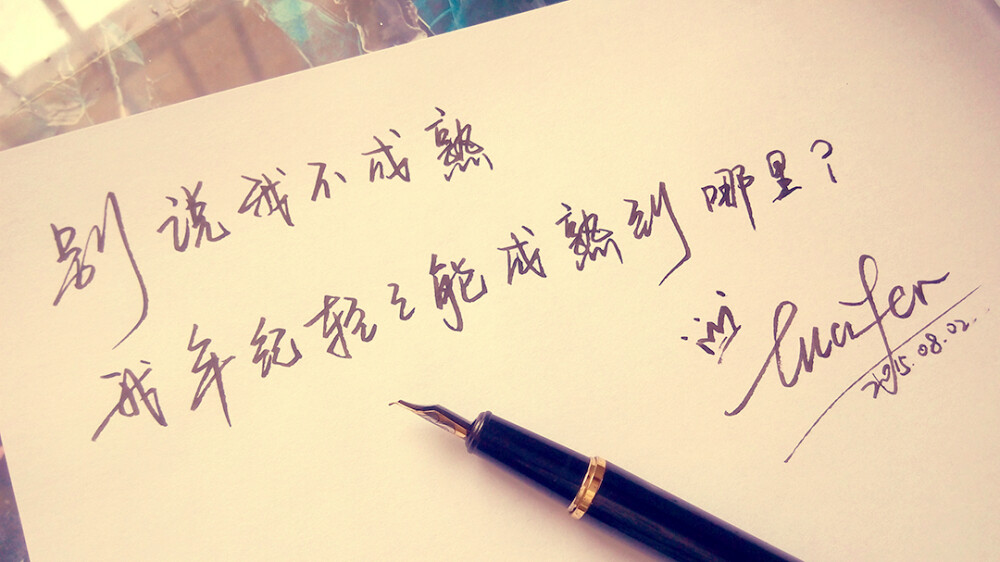 别说我不成熟
我年纪轻轻能成熟到哪里?
Lucifer
2015.08.02.